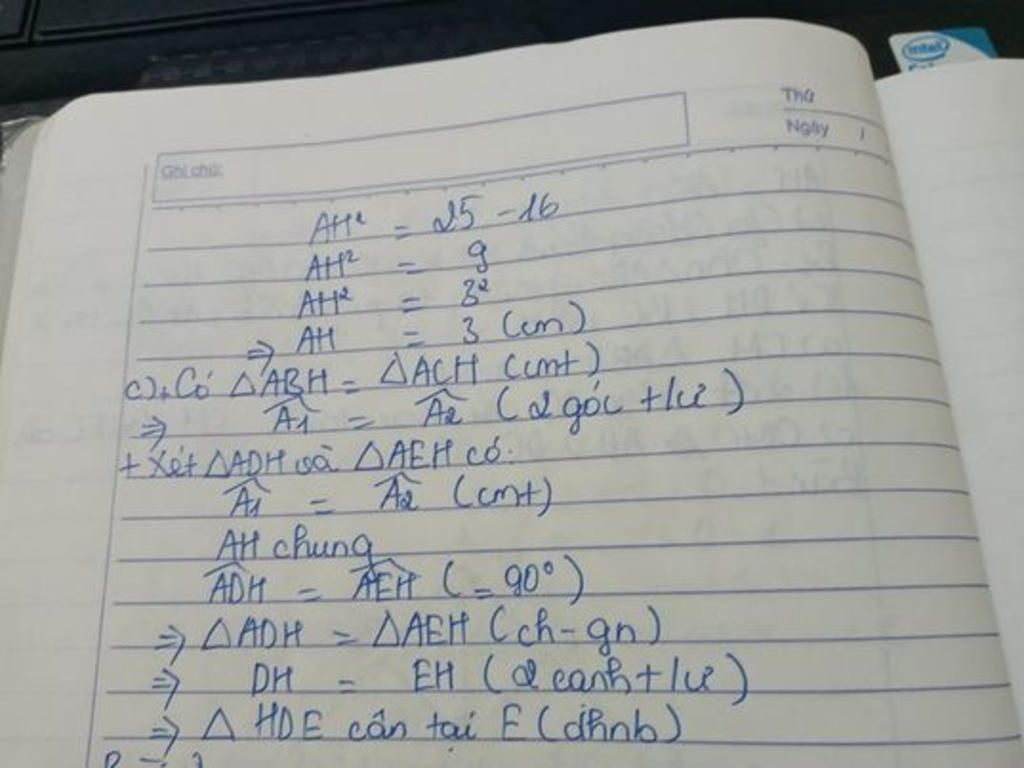 intel
Thứ
Ngày /
Ghi chú:
AH² = 25 - 16
AH² = 9
AH² = 3²
⇒ AH = 3 (cm)
c)+ Có △ABH = △ACH (cmt)
⇒ Â1 = Â2 (2 góc t/ư)
+ Xét △ADH và △AEH có.
Â1 = Â2 (cmt)
AH chung
ADH = AEH (= 90°)
⇒ △ADH = △AEH (ch-gn)
⇒ DH = EH (2 cạnh t/ư)
⇒ △ HDE cân tại E (dhnb)